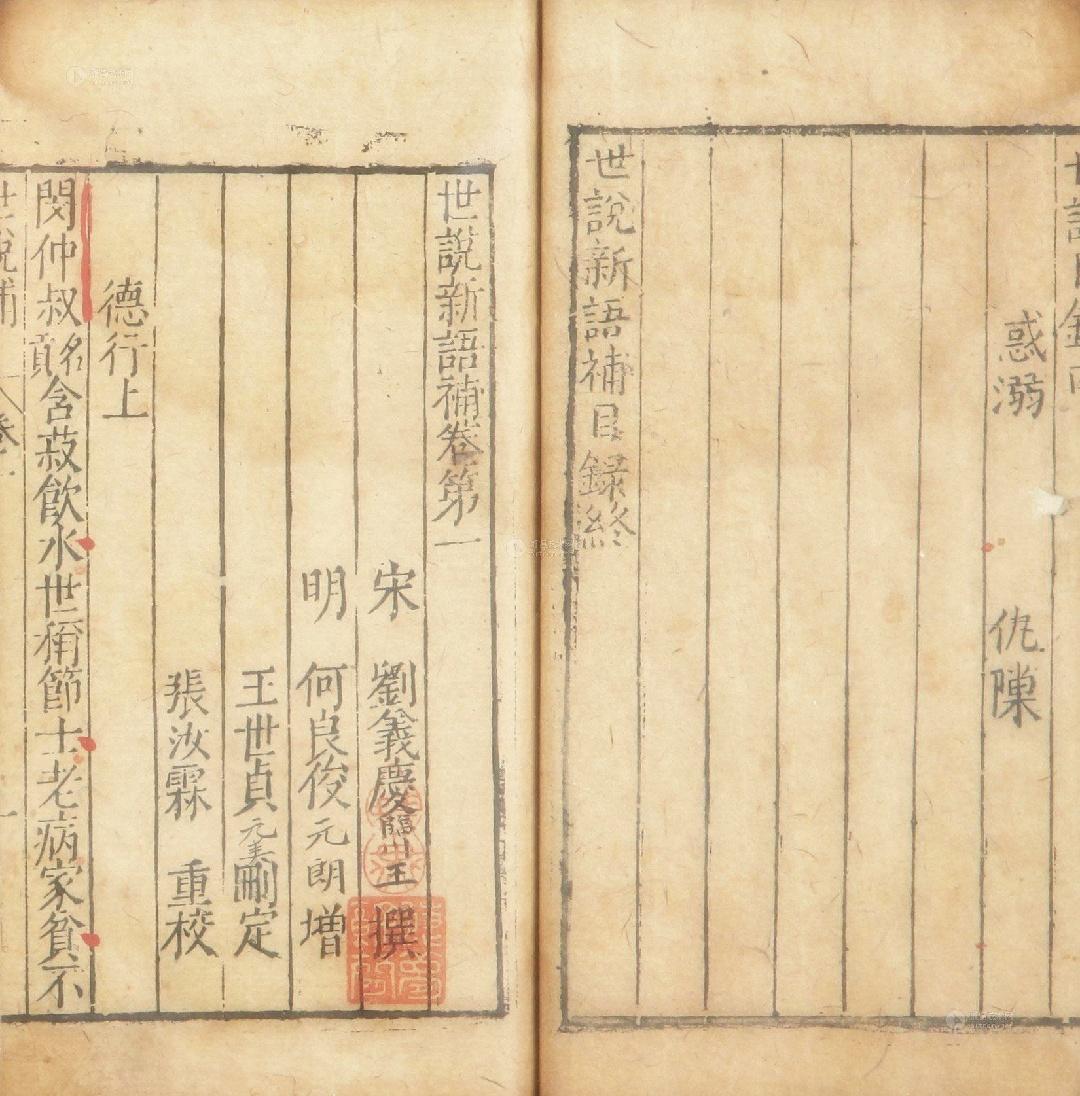 惑溺 仇隟
世說新語補目録終
世說新語補卷第一
宋 劉義慶臨川王 撰
明 何良俊元朗 增
王世貞元美刪定
張汝霖 重校
德行上
閔仲叔名貢含菽飲水世稱節士老病家貧不
世說補 卷一 一